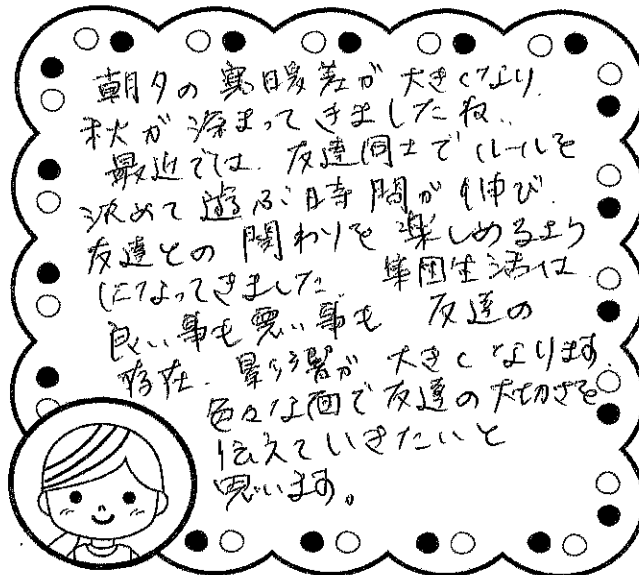 朝夕の寒暖差が大きくなり、
秋が深まってきましたね。
最近では、友達同士でルールを
決めて遊ぶ時間が伸び、
友達との関わりを楽しめるよう
になってきました。集団生活は、
良い事も悪い事も 友達の
存在、影響が大きくなります。
色々な面で友達の大切さを
伝えていきたいと
思います。